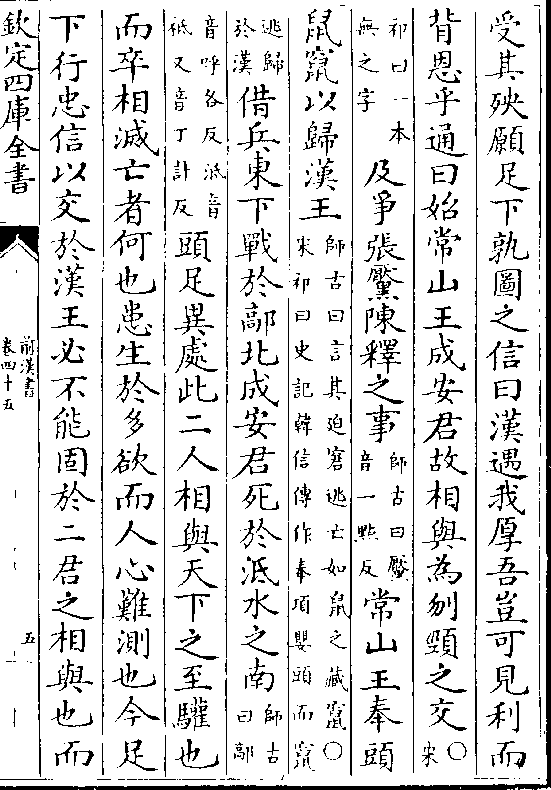 受其殃願足下孰圖之信曰漢遇我厚吾豈可見利而
背恩乎通曰始常山王成安君故相與為刎頸之交○宋
祁曰一本無之字及爭張黶陳釋之事師古曰黶音一點反常山王奉頭
鼠竄以歸漢王師古曰言其迫窘逃亡如鼠之藏竄○宋祁曰史記韓信傳作奉項嬰頭而竄
逃歸於漢借兵東下戰於鄗北成安君死於泜水之南師古曰鄗
音呼各反泜音祗又音丁計反頭足異處此二人相與天下之至驩也
而卒相滅亡者何也患生於多欲而人心難測也今足
下行忠信以交於漢王必不能固於二君之相與也而
欽定四庫全書
前漢書
卷四十五
五